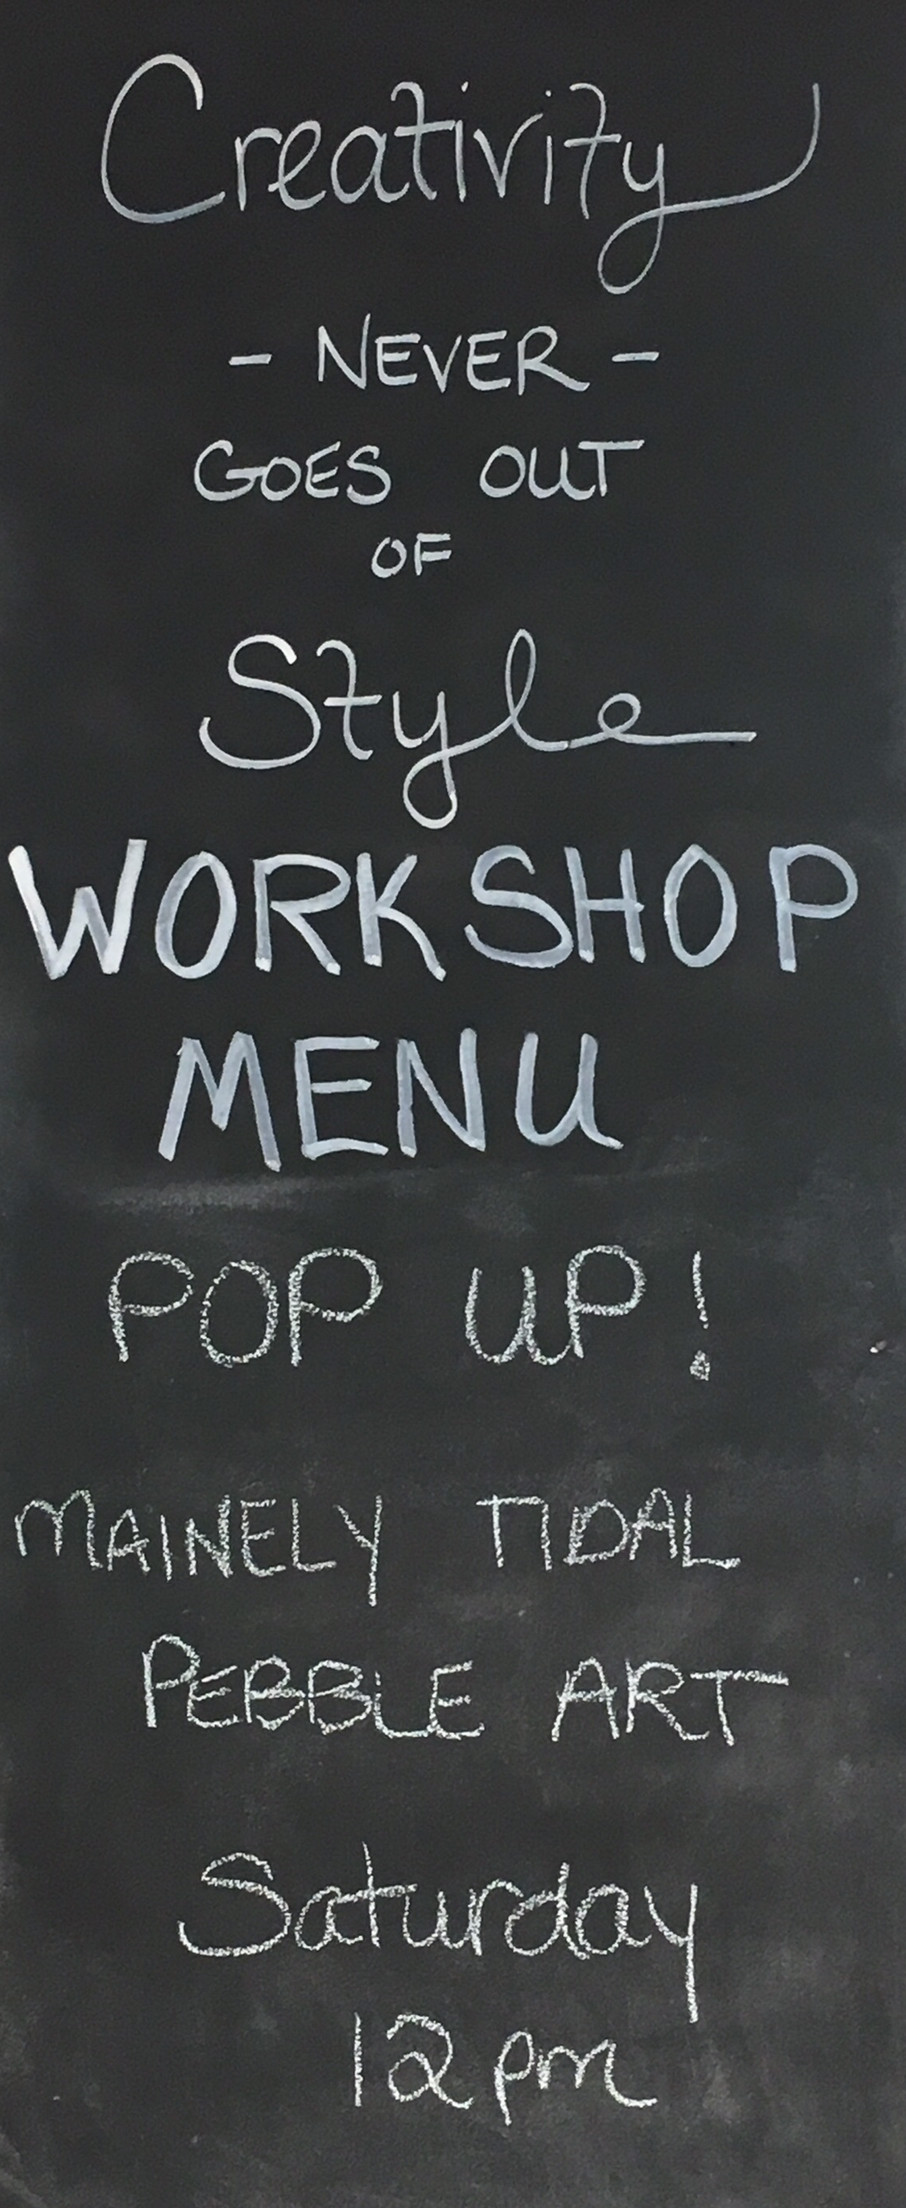 Creativity
- NEVER -
GOES OUT
OF
Style
WORKSHOP
MENU
POP UP!
MAINELY TIDAL
PEBBLE ART
Saturday
12pm